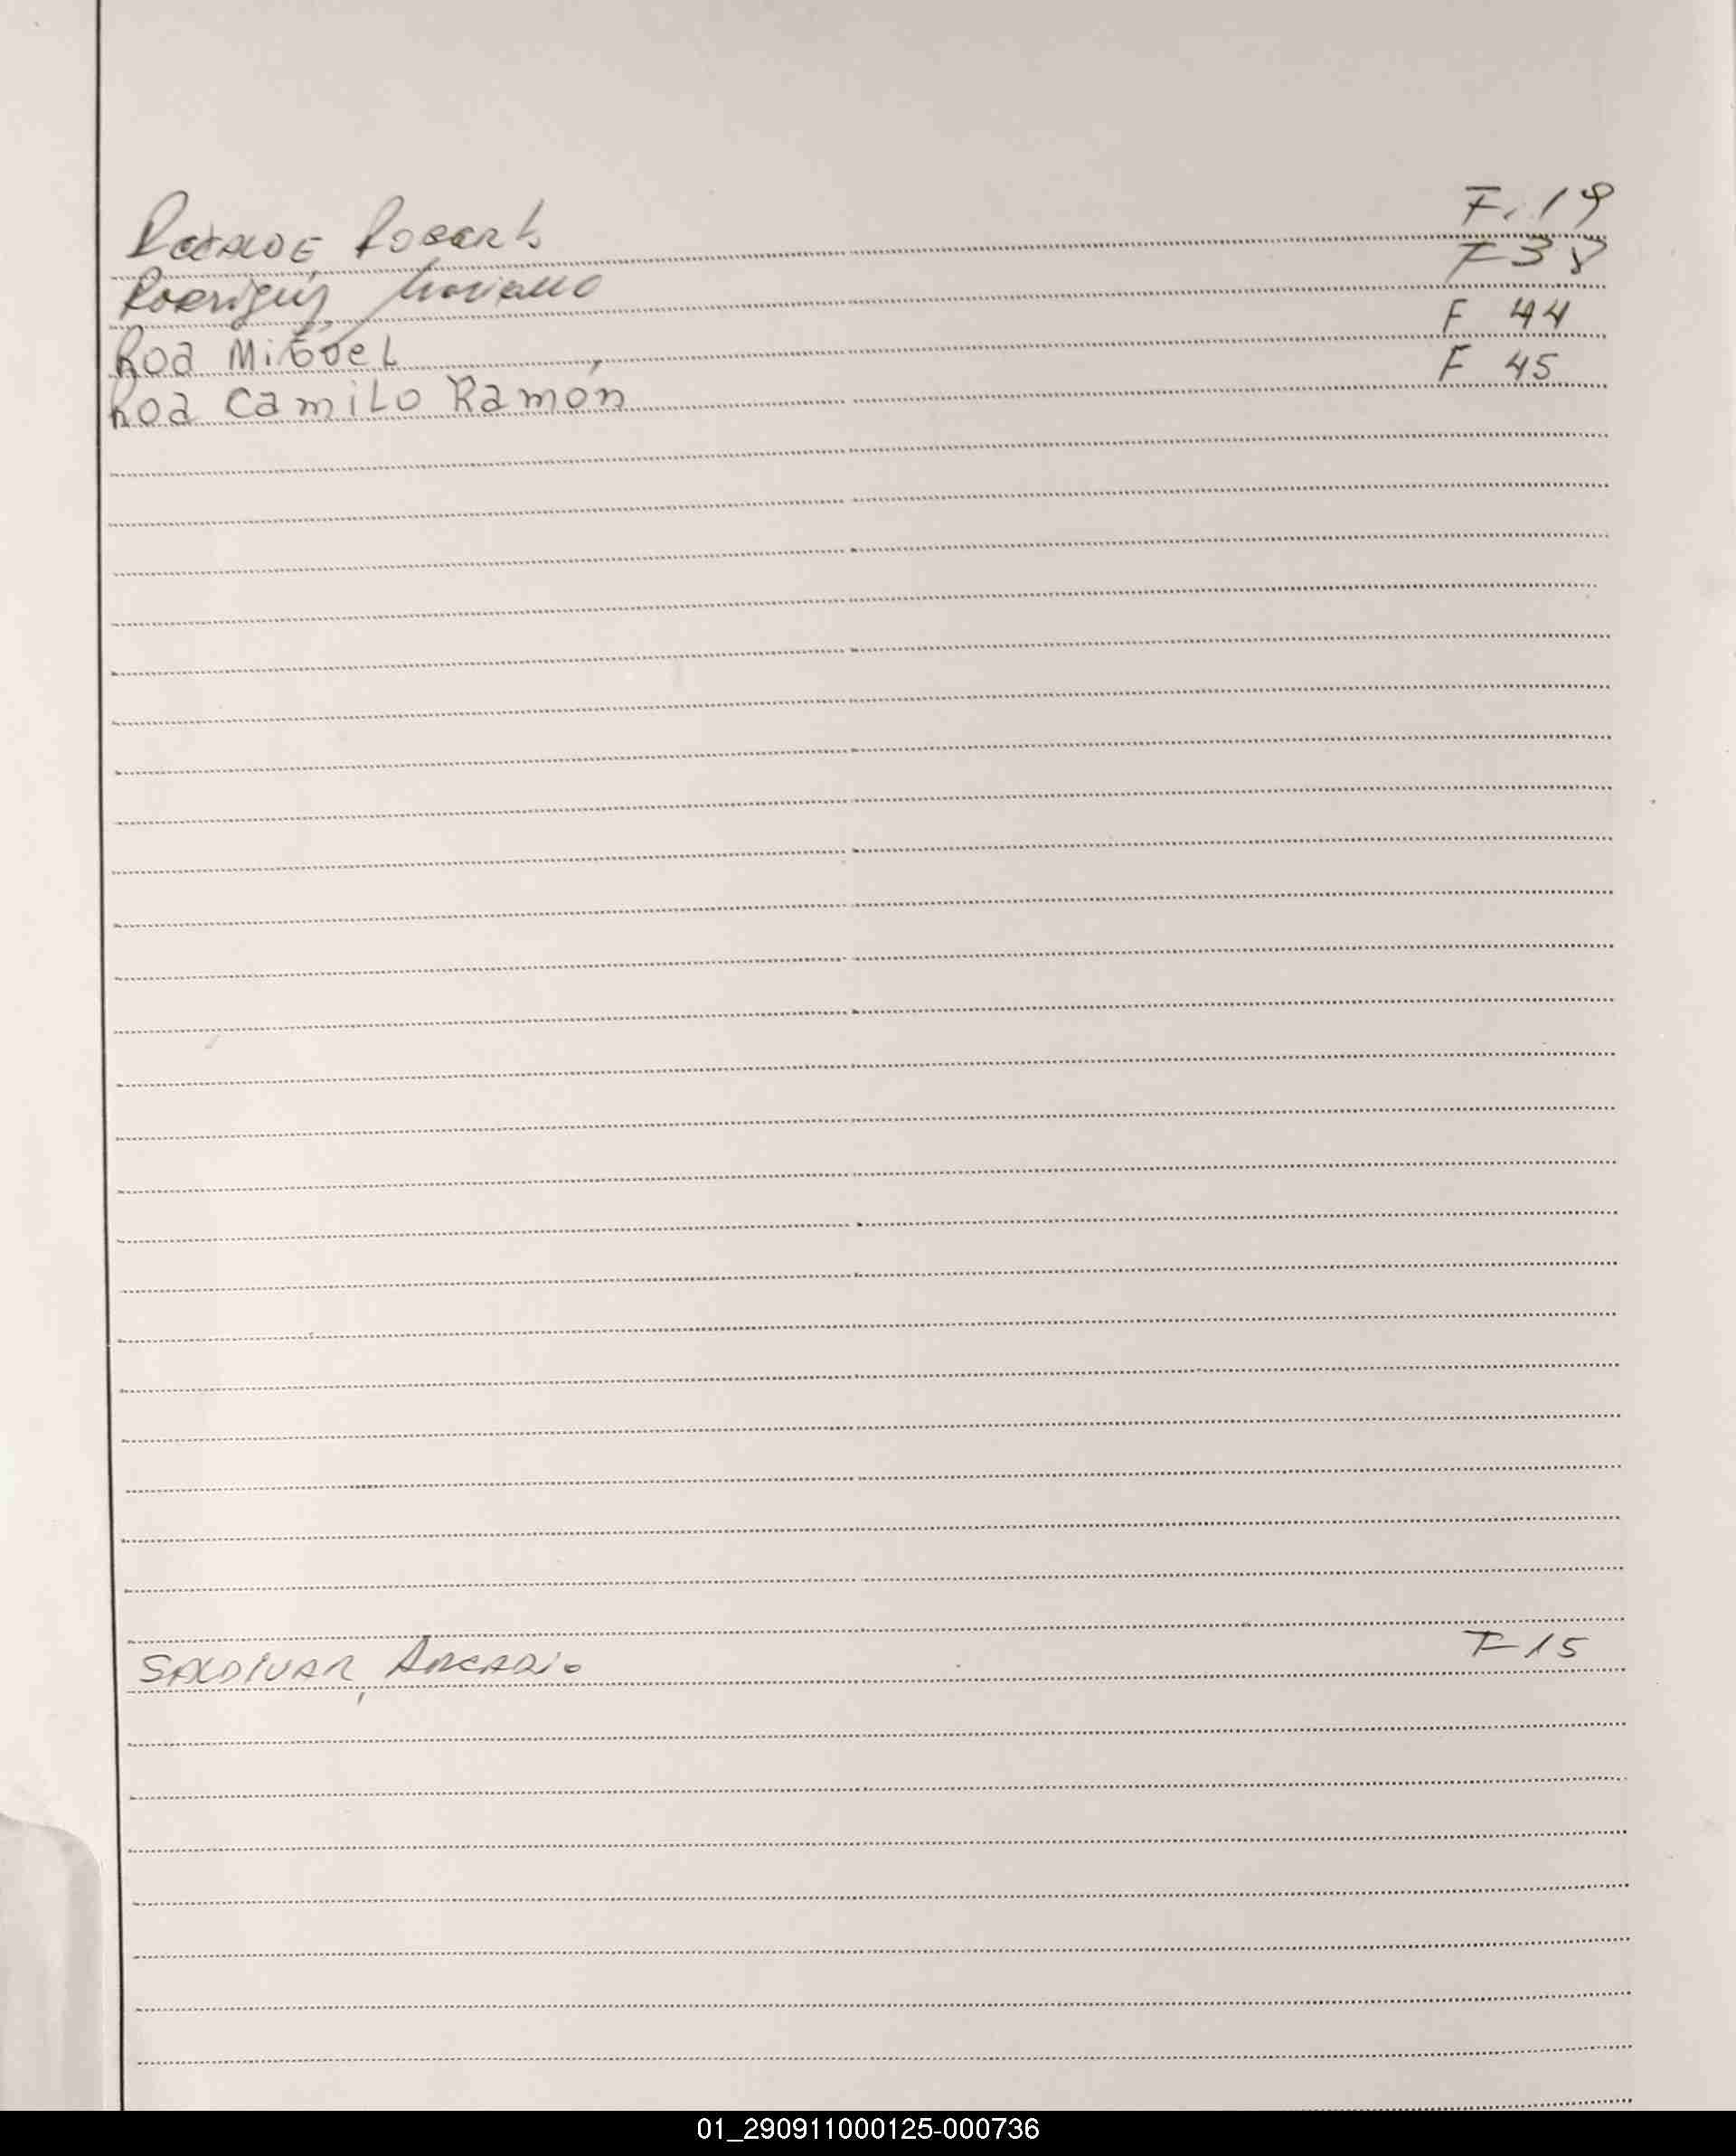 Recalde, Roberto F. 19
Rodriguez, Mariano F 38
Roa Miguel F 44
Roa Camilo Ramón F 45
SALDIVAR, ARCADIO F 15
01_290911000125-000736